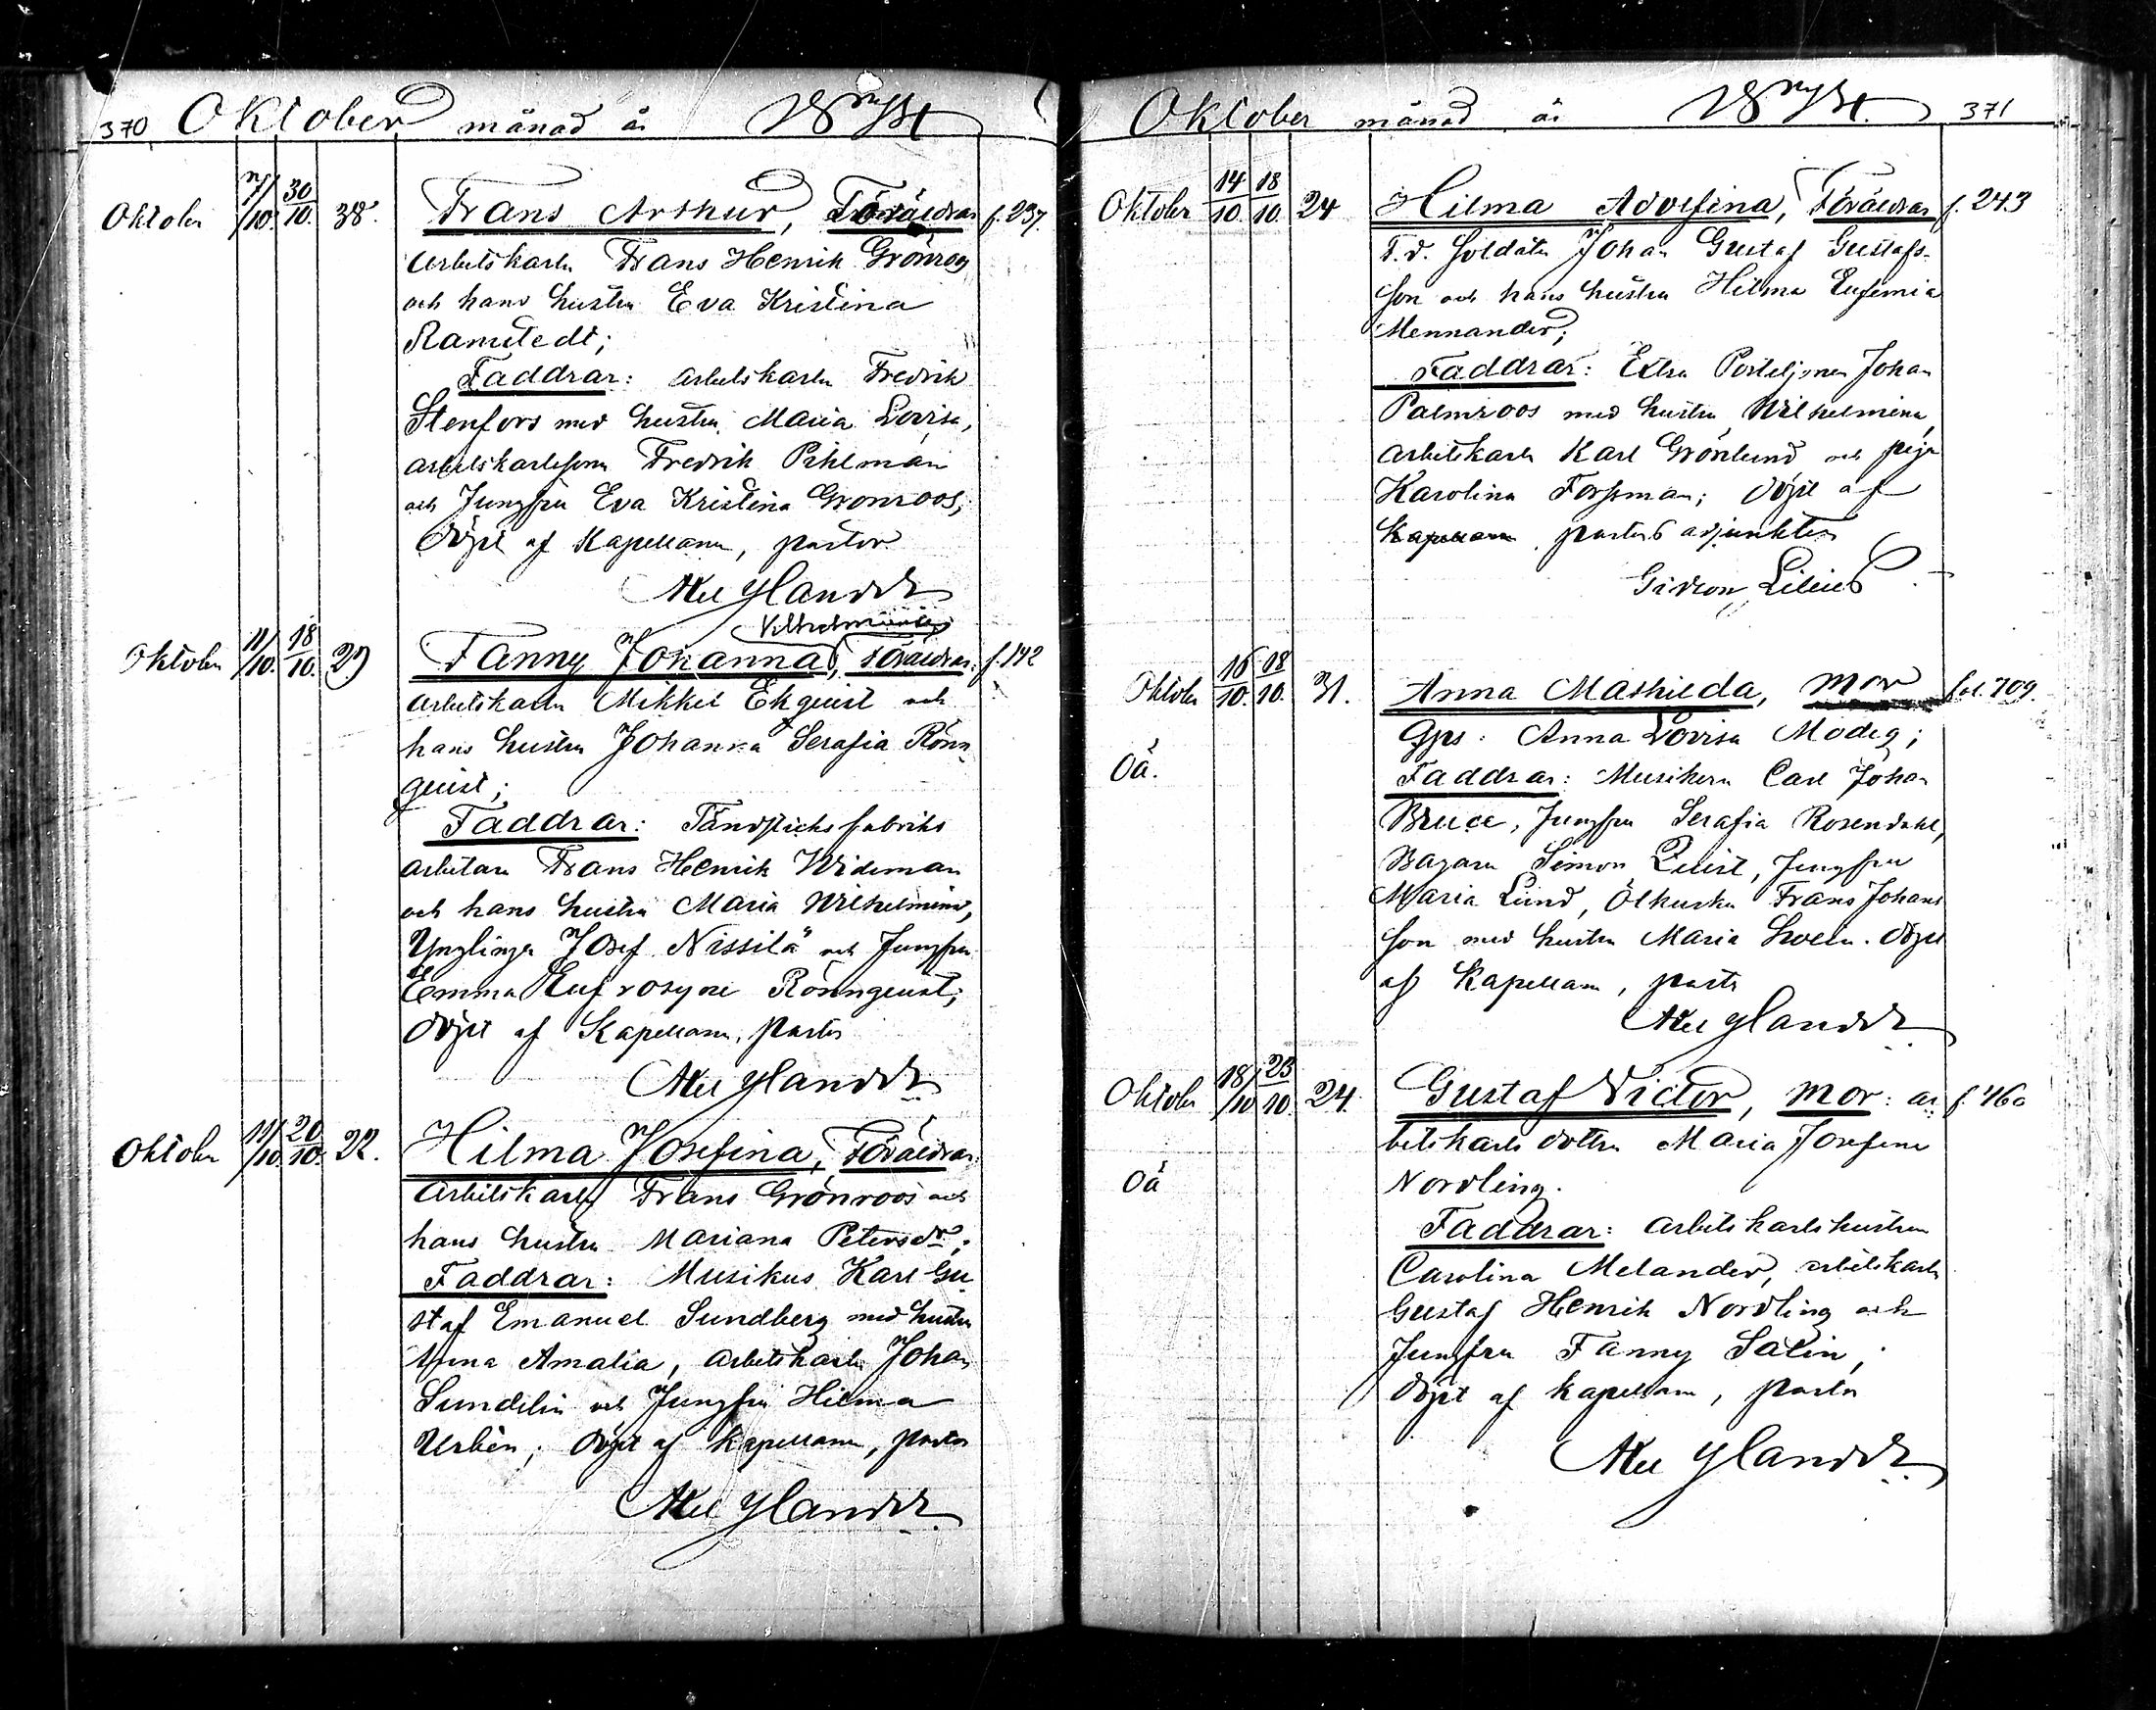 370 Oktober månad år
Oktober 7/10. 30/10. 38. Frans Arthur, Föräldrar f. 237.
arbetskarln Frans Henrik Grönroos
och hans hustru Eva Kristina
Ramstedt;
Faddrar: arbetskarln Fredrik
Stenfors med hustru Maria Lovisa,
arbetskarlssonen Fredrik Pihlman
och Jungfru Eva Kristina Grönroos;
döpt af Kapellanen, pastor
Ylander
Vilhelmina
Oktober 11/10. 18/10. 29 Fanny Johanna, Föräldrar: f. 142
arbetskarln Mikkel Ekqvist och
hans hustru Johanna Serafia Rönn
qvist;
Faddrar: Tändsticksfabriks
arbetaren Frans Henrik Wideman
och hans hustru Maria Wilhelmina,
Ynglingen Josef Nissilä och Jungfru
Emma Eufrosyne Rönnqvist;
döpt af Kapellanen, pastor
Ylander
Oktober 11/10. 20/10. 22. Hilma Josefina, Föräldrar:
Arbetskarln Frans Grönroos och
hans hustru Mariana Petersdr;
Faddrar: Musikus Karl Gu
staf Emanuel Sundberg med hustru
Anna Amalia, arbetskarln Johan
Sundelin och Jungfru Hilma
Urbèn; döpt af Kapellanen, pastor
Ylander
Oktober månad år 371
Oktober 14/10. 18/10. 24 Hilma Adolfina, Föräldrar f. 243
F.d. Soldaten Johan Gustaf Gustafs-
son och hans hustru Hilma Eufemia
Mennander;
Faddrar: Extra Postiljonen Johan
Palmroos med hustru Wilhelmina,
arbetskarln Karl Grönlund och pigan
Karolina Forssman; döpt af
Kapellanen pastors adjunkten
Gideon Lilius
Oktober 16/10. 18/10. 31. Anna Mathilda, Mor fol. 709.
Oä.
Gps: Anna Lovisa Modeg;
Faddrar: Musikern Carl Johan
Bruce, Jungfru Serafia Rosendahl,
Bagaren Simon Qvist, Jungfru
Maria Lund, Ölkusken Frans Johans
son med hustru Maria döpt
af Kapellanen, pastor
Ylander
Oktober 18/10 23/10. 24. Gustaf Victor, Mor: ar f. 460
betskarls dottren Maria Josefina
Oä
Nordling.
Faddrar: arbetskarlshustrun
Carolina Melander, arbetskarln
Gustaf Henrik Nordling och
Jungfru Fanny Salin;
döpt af kapellanen, pastor
Ylander